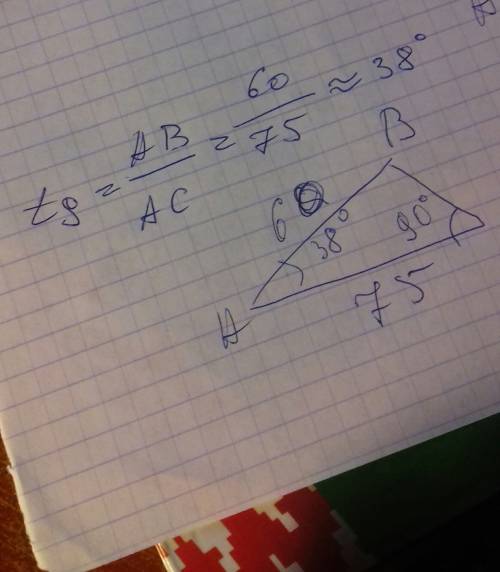 tg = AB/AC = 60/75 ≈ 38°
B
60
38°
90°
A
75